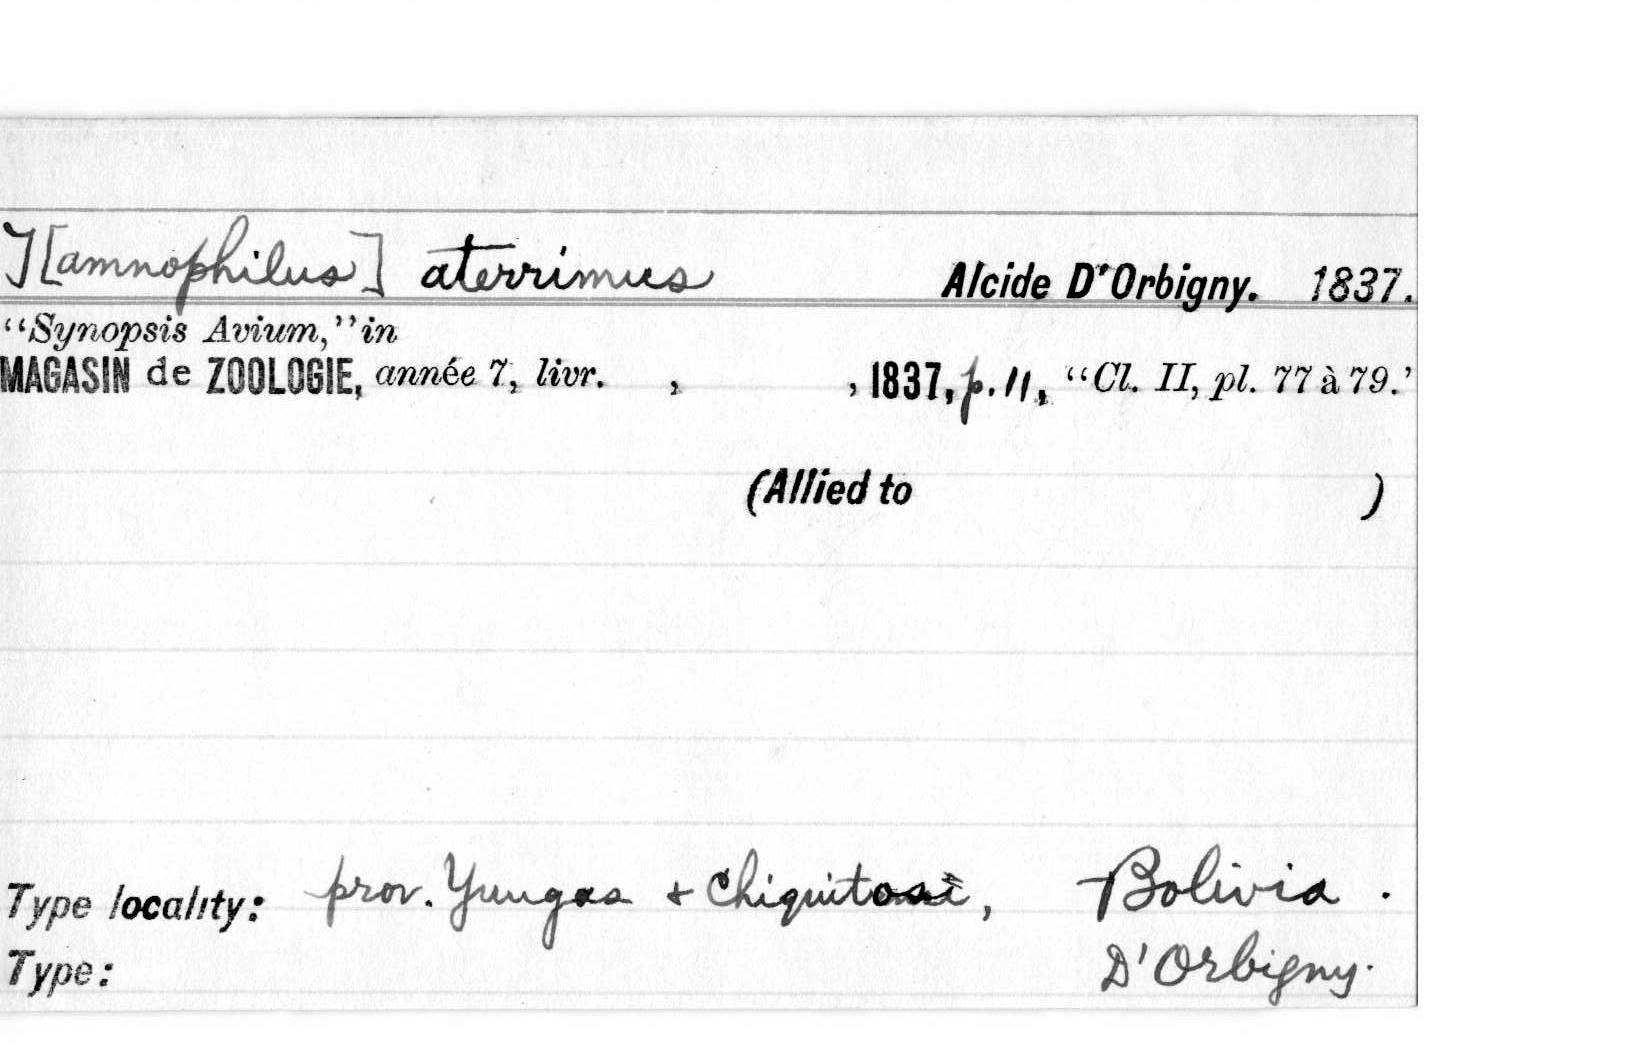 T[amnophilus] aterrimus Alcide D'Orbigny. 1837.
"Synopsis Avium," in
MAGASIN de ZOOLOGIE, année 7, livr. , , 1837, p. 11, "Cl. II, pl. 77 à 79.'
(Allied to )
Type locality: prov. Yungas + Chiquitosi, Bolivia.
Type: D'Orbigny.